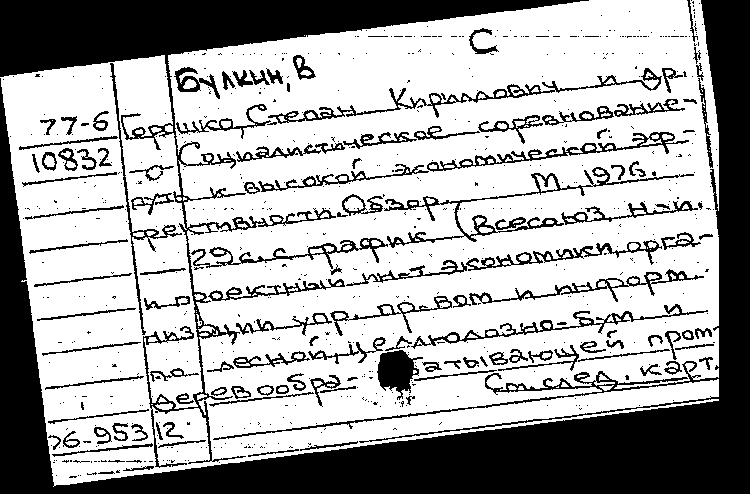 С
Булкин, В
77-6 Горошко, Степан Кириллович и др.
10832 -о- Социалистическое соревнование-
путь к высокой экономической эф-
фективности. Обзор. М., 1976.
29 с. с график. (Всесоюз. н.-и.
и проектный ин-т экономики, орга-
низации упр. пр-вом и информ.
по лесной, целлюлозно-бум. и
деревообра- батывающей пром
См. след. карт.
76-953 12